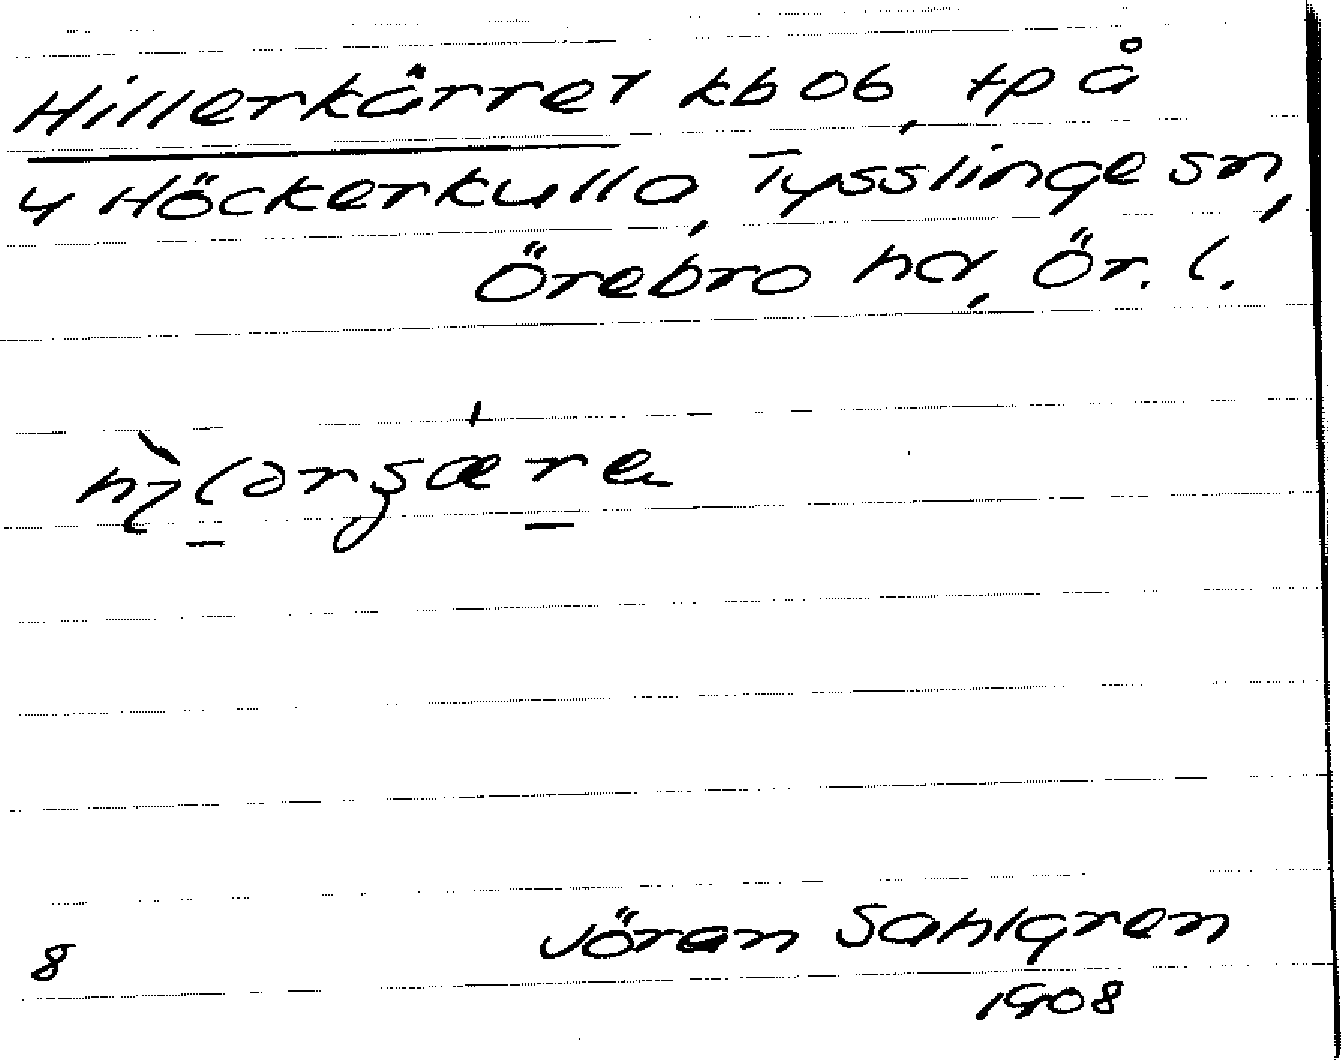 Hillerkärret kb ob, tp å
y Höckerkulla, Tysslinge sn,
Örebro hd, Ör. l.
8
Jöran Sahlgren
1908